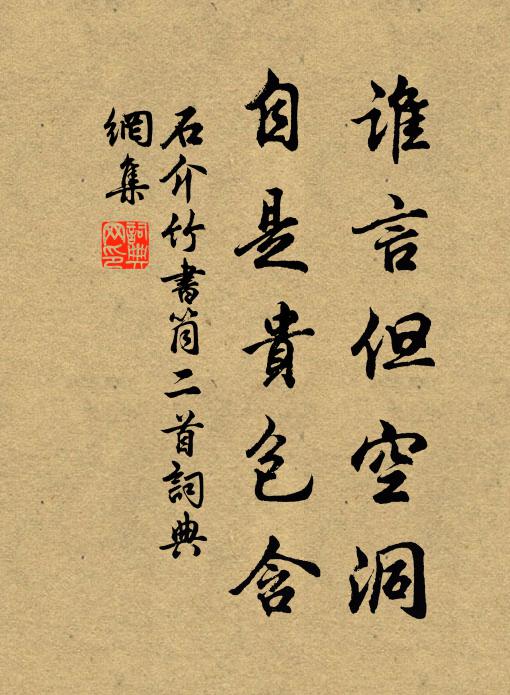 谁言但空洞
自是貴包含
石介竹書筒二首詞典
網集
詞典
网印